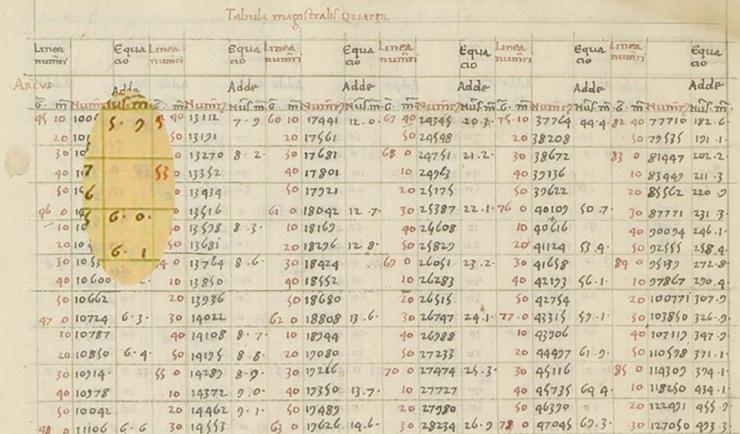 Tabula magistralis Quarta
Linea Equa Linea Equa Linea Equa Linea Equa Linea Equa Linea Equa
numeri cio numeri cio numeri cio numeri cio numeri cio numeri cio
Adde Adde Adde Adde Adde Adde
Arcus
G. m Numeri Nūs. m G. m Numeri Nūs. m G. m Numeri Nūs. m G. m Numeri Nūs. m G. m Numeri Nūs. m G. m Numeri Nūs. m
45 10 5. 9 40 13112 7. 9 60 10 17441 12. 0. 67 40 24345 20. 3. 75. 10 37764 44. 4. 82 40 77710 182. 6.
20 50 13191 20 17561 50 24548 20 38208 50 79535 191. 1.
30 13270 8. 2. 30 17681 68 0 24751 21. 2. 30 38672 83 0 81447 202. 2.
40 7 53 13352 40 17801 10 24963 40 39136 10 83449 211. 3
50 6 13434 50 17921 20 25175 50 39622 20 85562 220. 9
46 0 6. 0. 13516 61 0 18042 12. 7. 30 25387 22. 1. 76 0 40109 50. 7. 30 87771 231. 3
10 13598 8. 3. 10 18169 40 25608 10 40616 40 90094 246. 1.
20 6. 1 50 13681 20 18296 12. 8. 50 25829 20 41124 53. 4. 50 92555 258. 4.
30 13764 8. 6. 30 18424 69 0 26051 23. 2. 30 41658 84 0 95139 272. 8.
40 10600 10 13850 40 18552 10 26283 40 42193 56. 1. 10 97867 290. 4.
50 10662 20 13936 50 18680 20 26515 50 42754 20 100771 307. 9
47 0 10724 6. 3. 30 14022 62 0 18808 13. 6. 30 26747 24. 1. 77. 0 43315 59. 1. 30 103850 326. 9.
10 10787 40 14108 8. 7. 10 18944 40 26988 10 43906 40 107119 347. 9
20 10850 6. 4. 50 14195 8. 8. 20 19080 50 27233 20 44497 61. 9. 50 110598 371. 1.
30 10914 55 0 14283 8. 9. 30 19216 70 0 27474 25. 3. 30 45116 85 0 114309 394. 1.
40 10978 10 14372 9. 0. 40 19350 13. 7. 10 27727 40 45735 64. 4. 10 118250 434. 1.
50 10042 20 14462 9. 1. 50 19489 20 27980 50 46390 20 122491 455. 9.
48 0 11106 6. 6 30 14553 63 0 19626 14. 6. 30 28234 26. 9 78 0 47045 69. 3. 30 127050 493. 3.